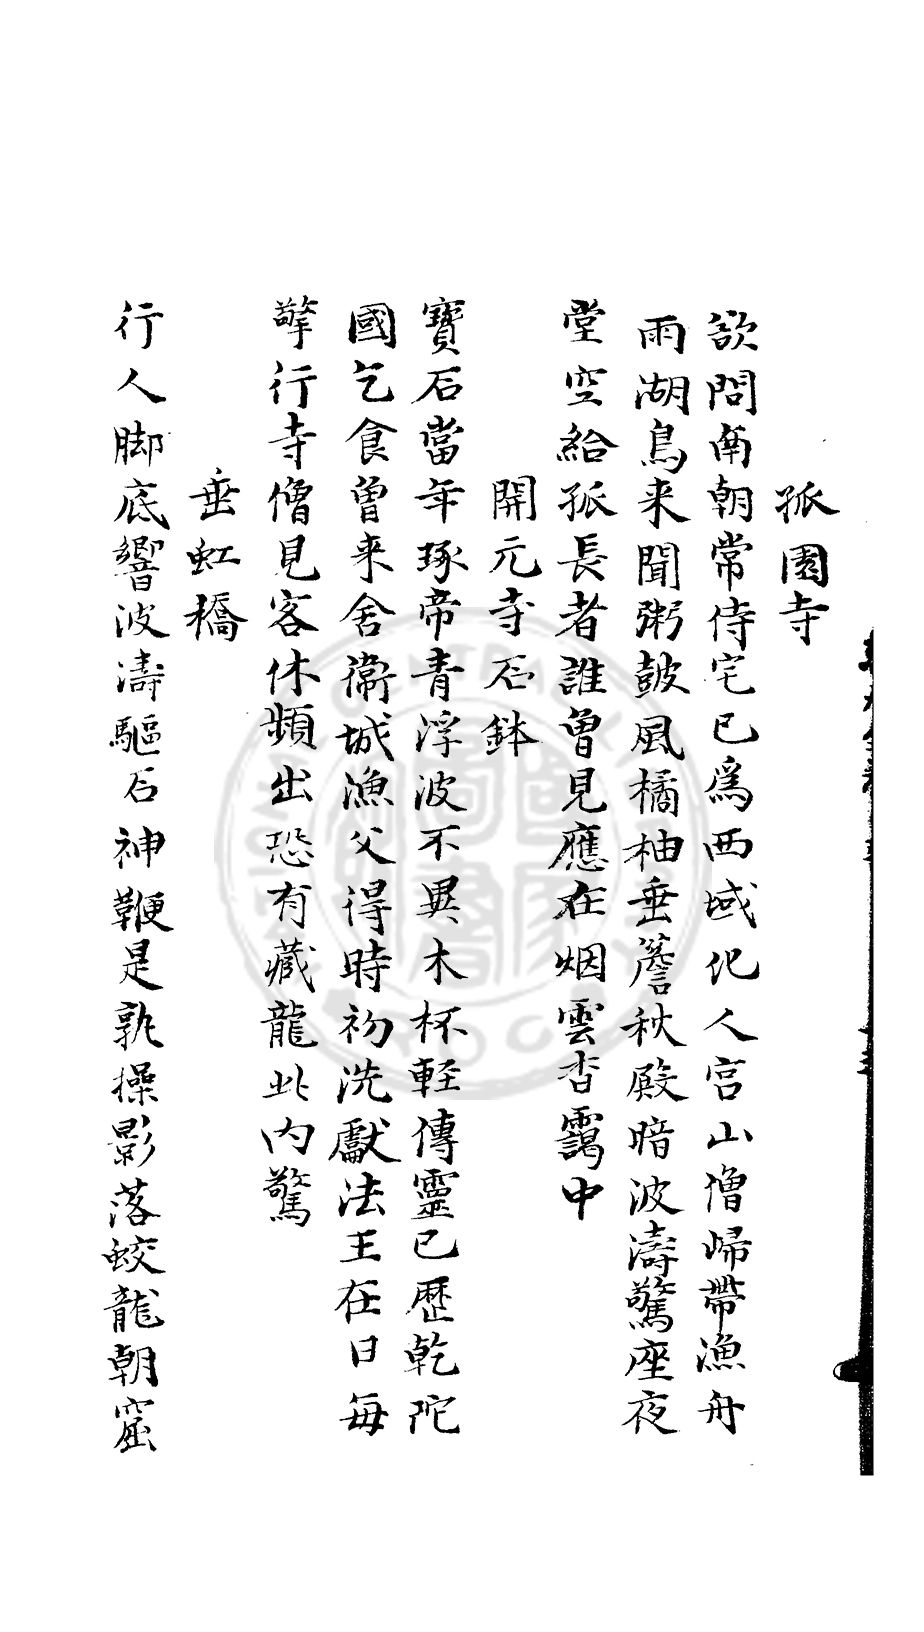 孤園寺
欲問南朝常侍宅已為西域化人宮山僧歸帶漁舟
雨湖鳥来聞粥鼓風橘柚垂簷秋殿暗波濤驚座夜
堂空給孤長者誰曾見應在烟雲杳靄中
開元寺石鉢
寶石當年琢帝青浮波不異木杯輕傳靈已歷乾陀
國乞食曾来舍衞城漁父得時初洗獻法王在日每
擎行寺僧見客休頻出恐有藏龍此内驚
垂虹橋
行人脚底響波濤驅石神鞭是孰操影落蛟龍朝窟